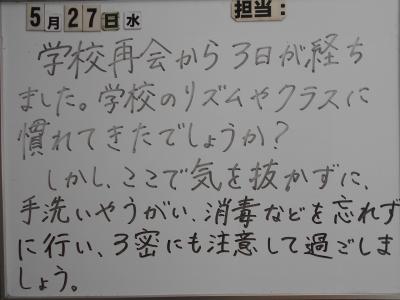 5月27日水 担当:
学校再会から3日が経ち
ました。学校のリズムやクラスに
慣れてきたでしょうか?
しかし、ここで気を抜かずに、
手洗いやうがい、消毒などを忘れず
に行い、3密にも注意して過ごしま
しょう。